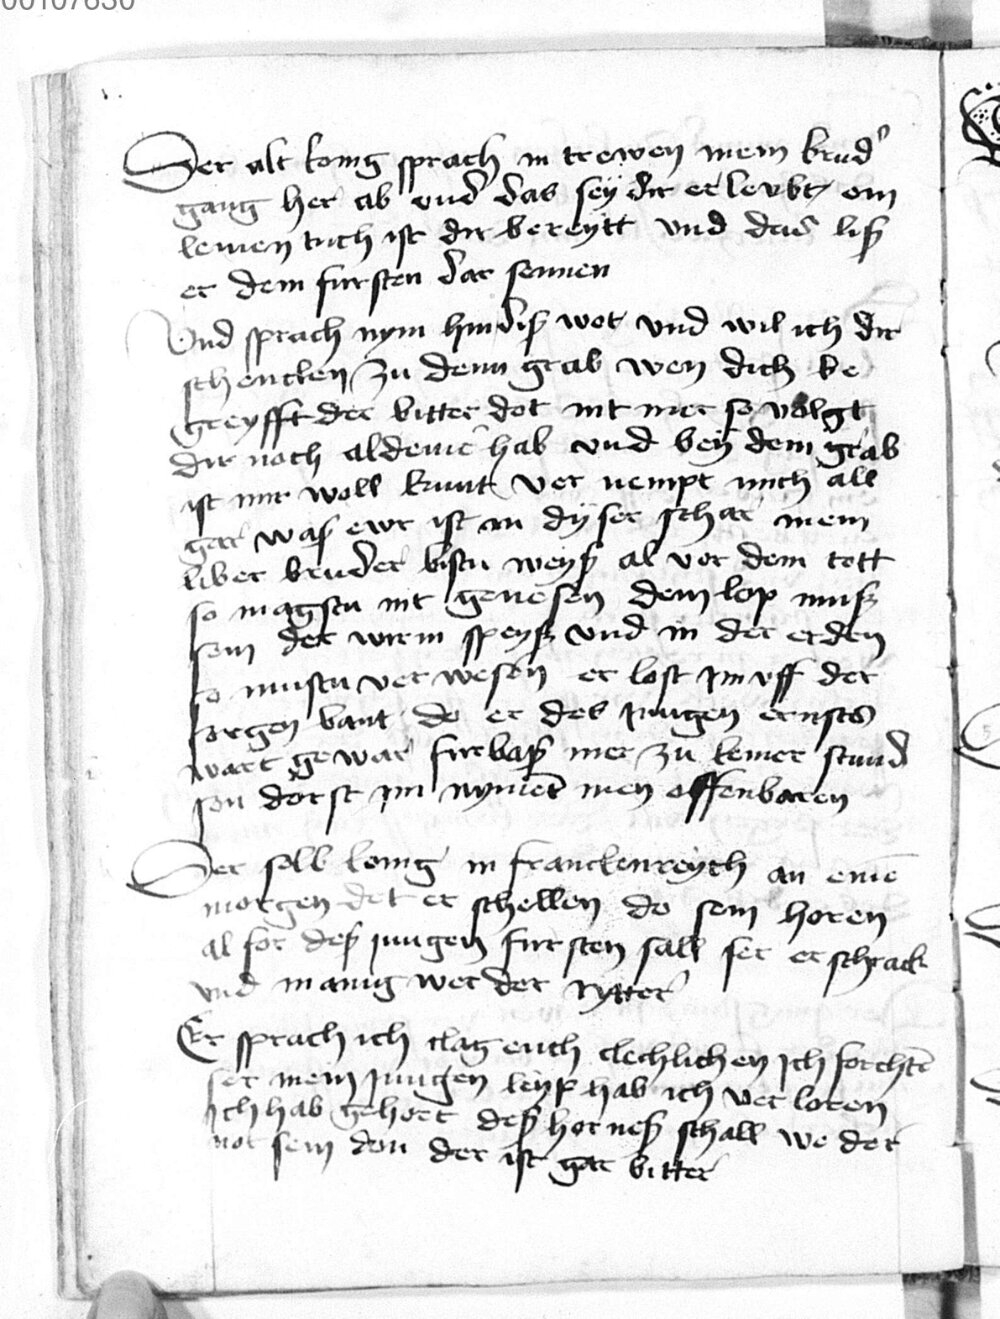 00107630
Der alt konig sprach in trewen mein brud
gang her ab und das sey dir erlevbt ein
leinen tuch ist dir bereytt und das liß
er dem fursten dar sennen
Und sprach nym hin diß wot und wil ich dir
schencken zu deim grab wen dich be
greyfft der bitter dot nit mer so volgt
dir noch al deine hab und bey dem grab
ist mir woll kunt ver nempt mich all
gar waß ewr ist an dyser schar mein
liber bruder bistu weyß al vor dem tott
so magstu nit genesen dein lop muß
sein der wirm speyß und in der erden
so mustu ver wesen er lost im uff der
sorgen bant do er des jungen ernsts
wart gewar furbaß mer zu keiner stund
sou dorst im nyment men offenbaren
Der selb konig in franckenreych an eine
morgen det er schellen do sein horen
al for deß jungen fursten sall ser er schrack
und manig werder rytter
Er sprach ich clag euch clechlichen ich forcht
ser mein jungen leyp hab ich ver loren
Ich hab gehort deß horneß schall we der
not sein don der ist gar bitter